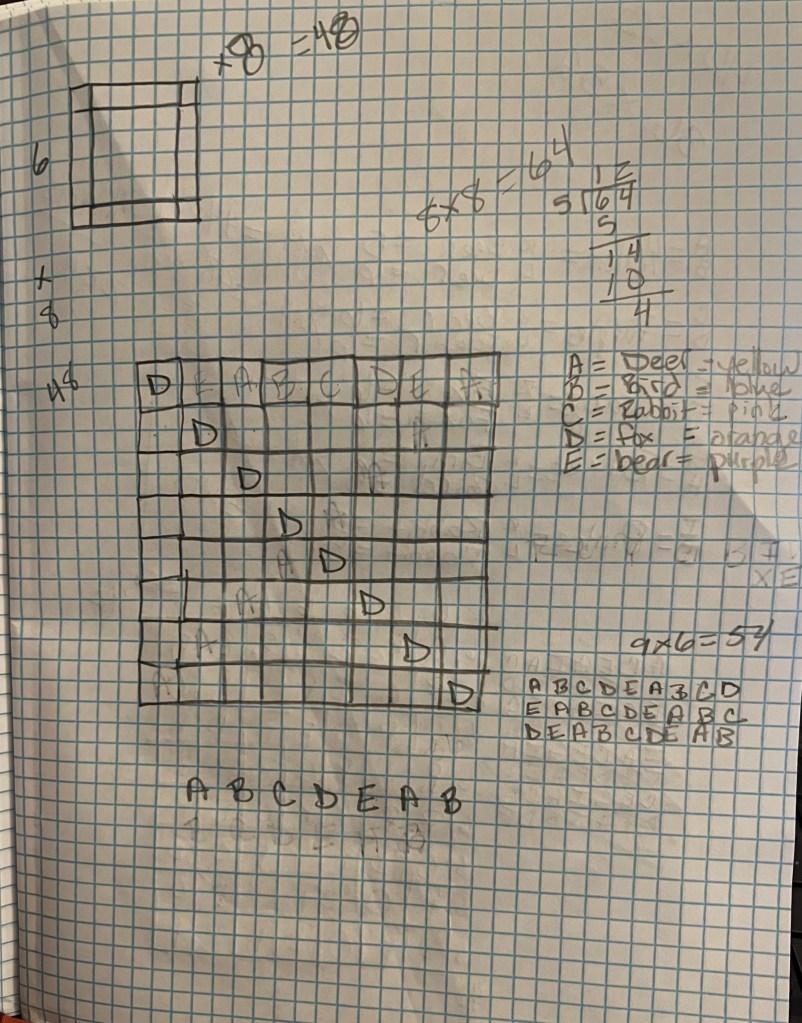 x8 = 48
6
x
8
48
8x8 = 64
12
5 64
5
14
10
4
D E A B C D E A
D A
D A
D A
A D
A D
A D
A D
A = Deer = yellow
B = Bird = blue
C = Rabbit = pink
D = fox = orange
E = bear = purple
9x6 = 54
A B C D E A B C D
E A B C D E A B C
D E A B C D E A B
A B C D E A B